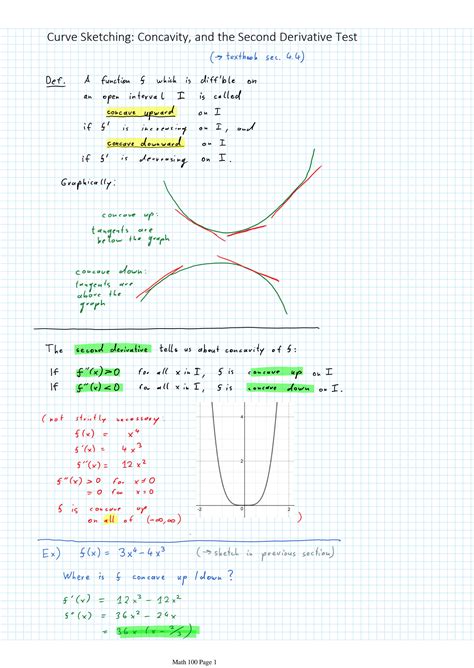 Curve Sketching: Concavity, and the Second Derivative Test
(→ textbook sec. 4.4)
Def. A function f which is diff'ble on
an open interval I is called
concave upward on I
if f' is increasing on I, and
concave downward on I
if f' is decreasing on I.
Graphically:
concave up:
tangents are
below the graph
concave down:
tangents are
above the
graph
The second derivative tells us about concavity of f:
If f''(x)>0 for all x in I, f is concave up on I
If f''(x)<0 for all x in I, f is concave down on I.
(not strictly necessary:
f(x) = x⁴
f'(x) = 4x³
f''(x) = 12x²
f''(x) > 0 for x≠0
= 0 for x=0
f is concave up
on all of (-∞,∞)
)
4
2
-2 0 2
Ex) f(x) = 3x⁴-4x³ (→sketch in previous section)
Where is f concave up /down?
f'(x) = 12x³ - 12x²
f''(x) = 36x² - 24x
= 36x(x-2/3)
Math 100 Page 1